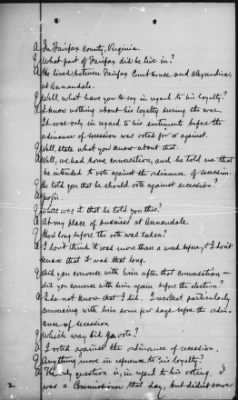 A In Fairfax County, Virginia.
Q What part of Fairfax did he live in?
A He lived between Fairfax Court house and Alexandria
at Annandale.
Q Well, what have you to say in regard to his loyalty?
A I know nothing about his loyalty during the war.
It was only in regard to his sentiments before the
ordinance of secession was voted for or against.
Q Well, state what you know about that.
A Well, we had some conversation, and he told me that
he intended to vote against the ordinance of secession.
Q He told you that he should vote against secession?
A Yes, sir.
Q Where was it that he told you this?
A At my place of business at Annandale.
Q How long before the vote was taken?
A I don't think it was more than a week before, & I don't
know that it was that long.
Q Did you converse with him after that conversation —
did you converse with him again before the election?
A I do not know that I did. I recollect particularly
conversing with him some few days before the ordin-
ance of secession
Q Which way did you vote?
A I voted against the ordinance of secession.
Q Anything more in reference to his loyalty?
A The only question is, in regard to his voting. I
was a Commissioner that day, but did not
2